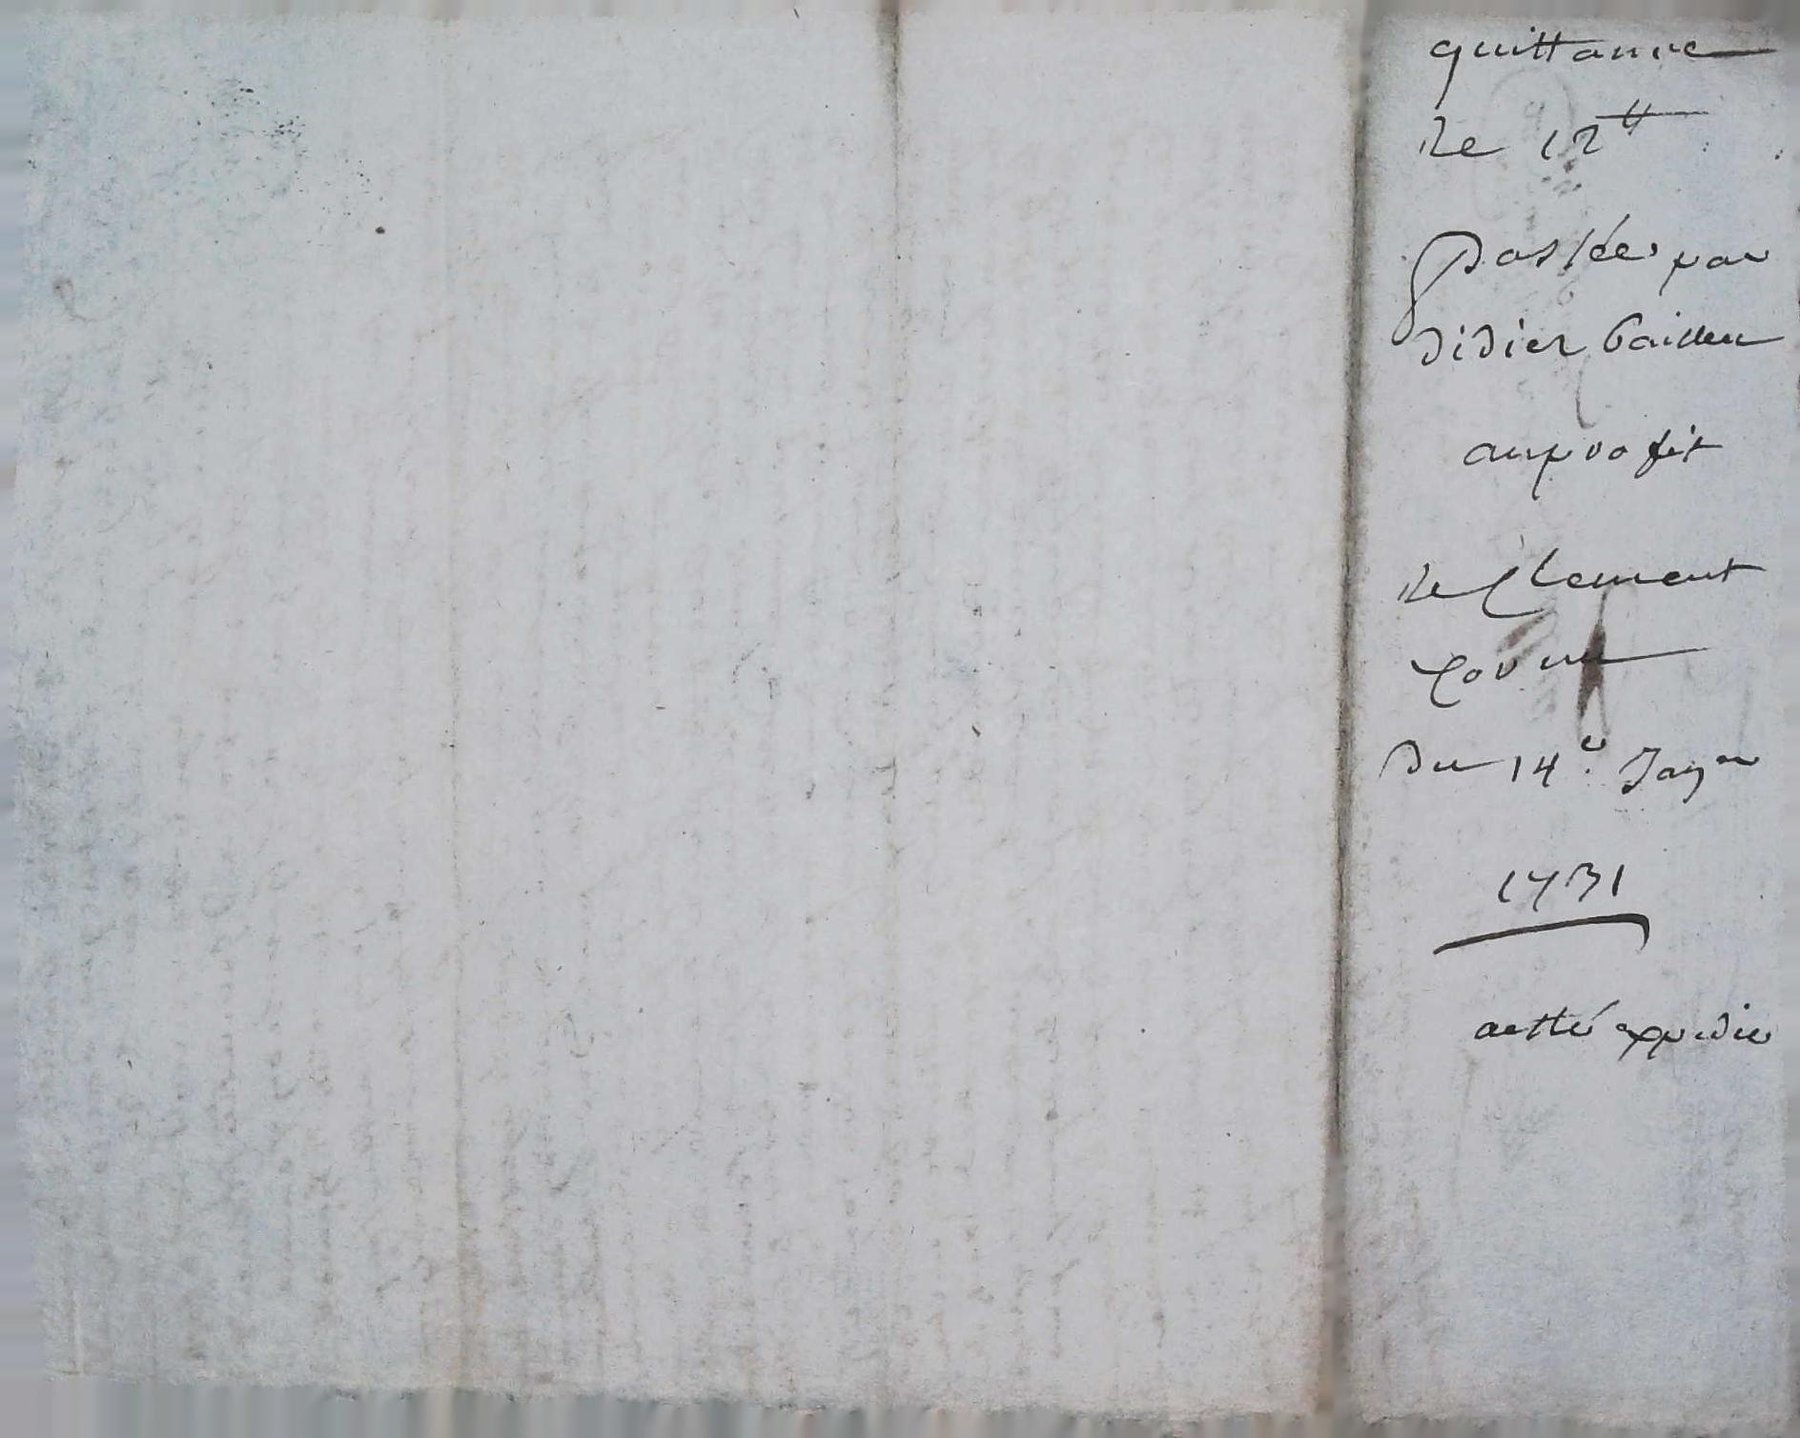 quittance
de 12tt
passée par
didier
au profit
de Clement
du 14e Janer
1731
a esté expedie